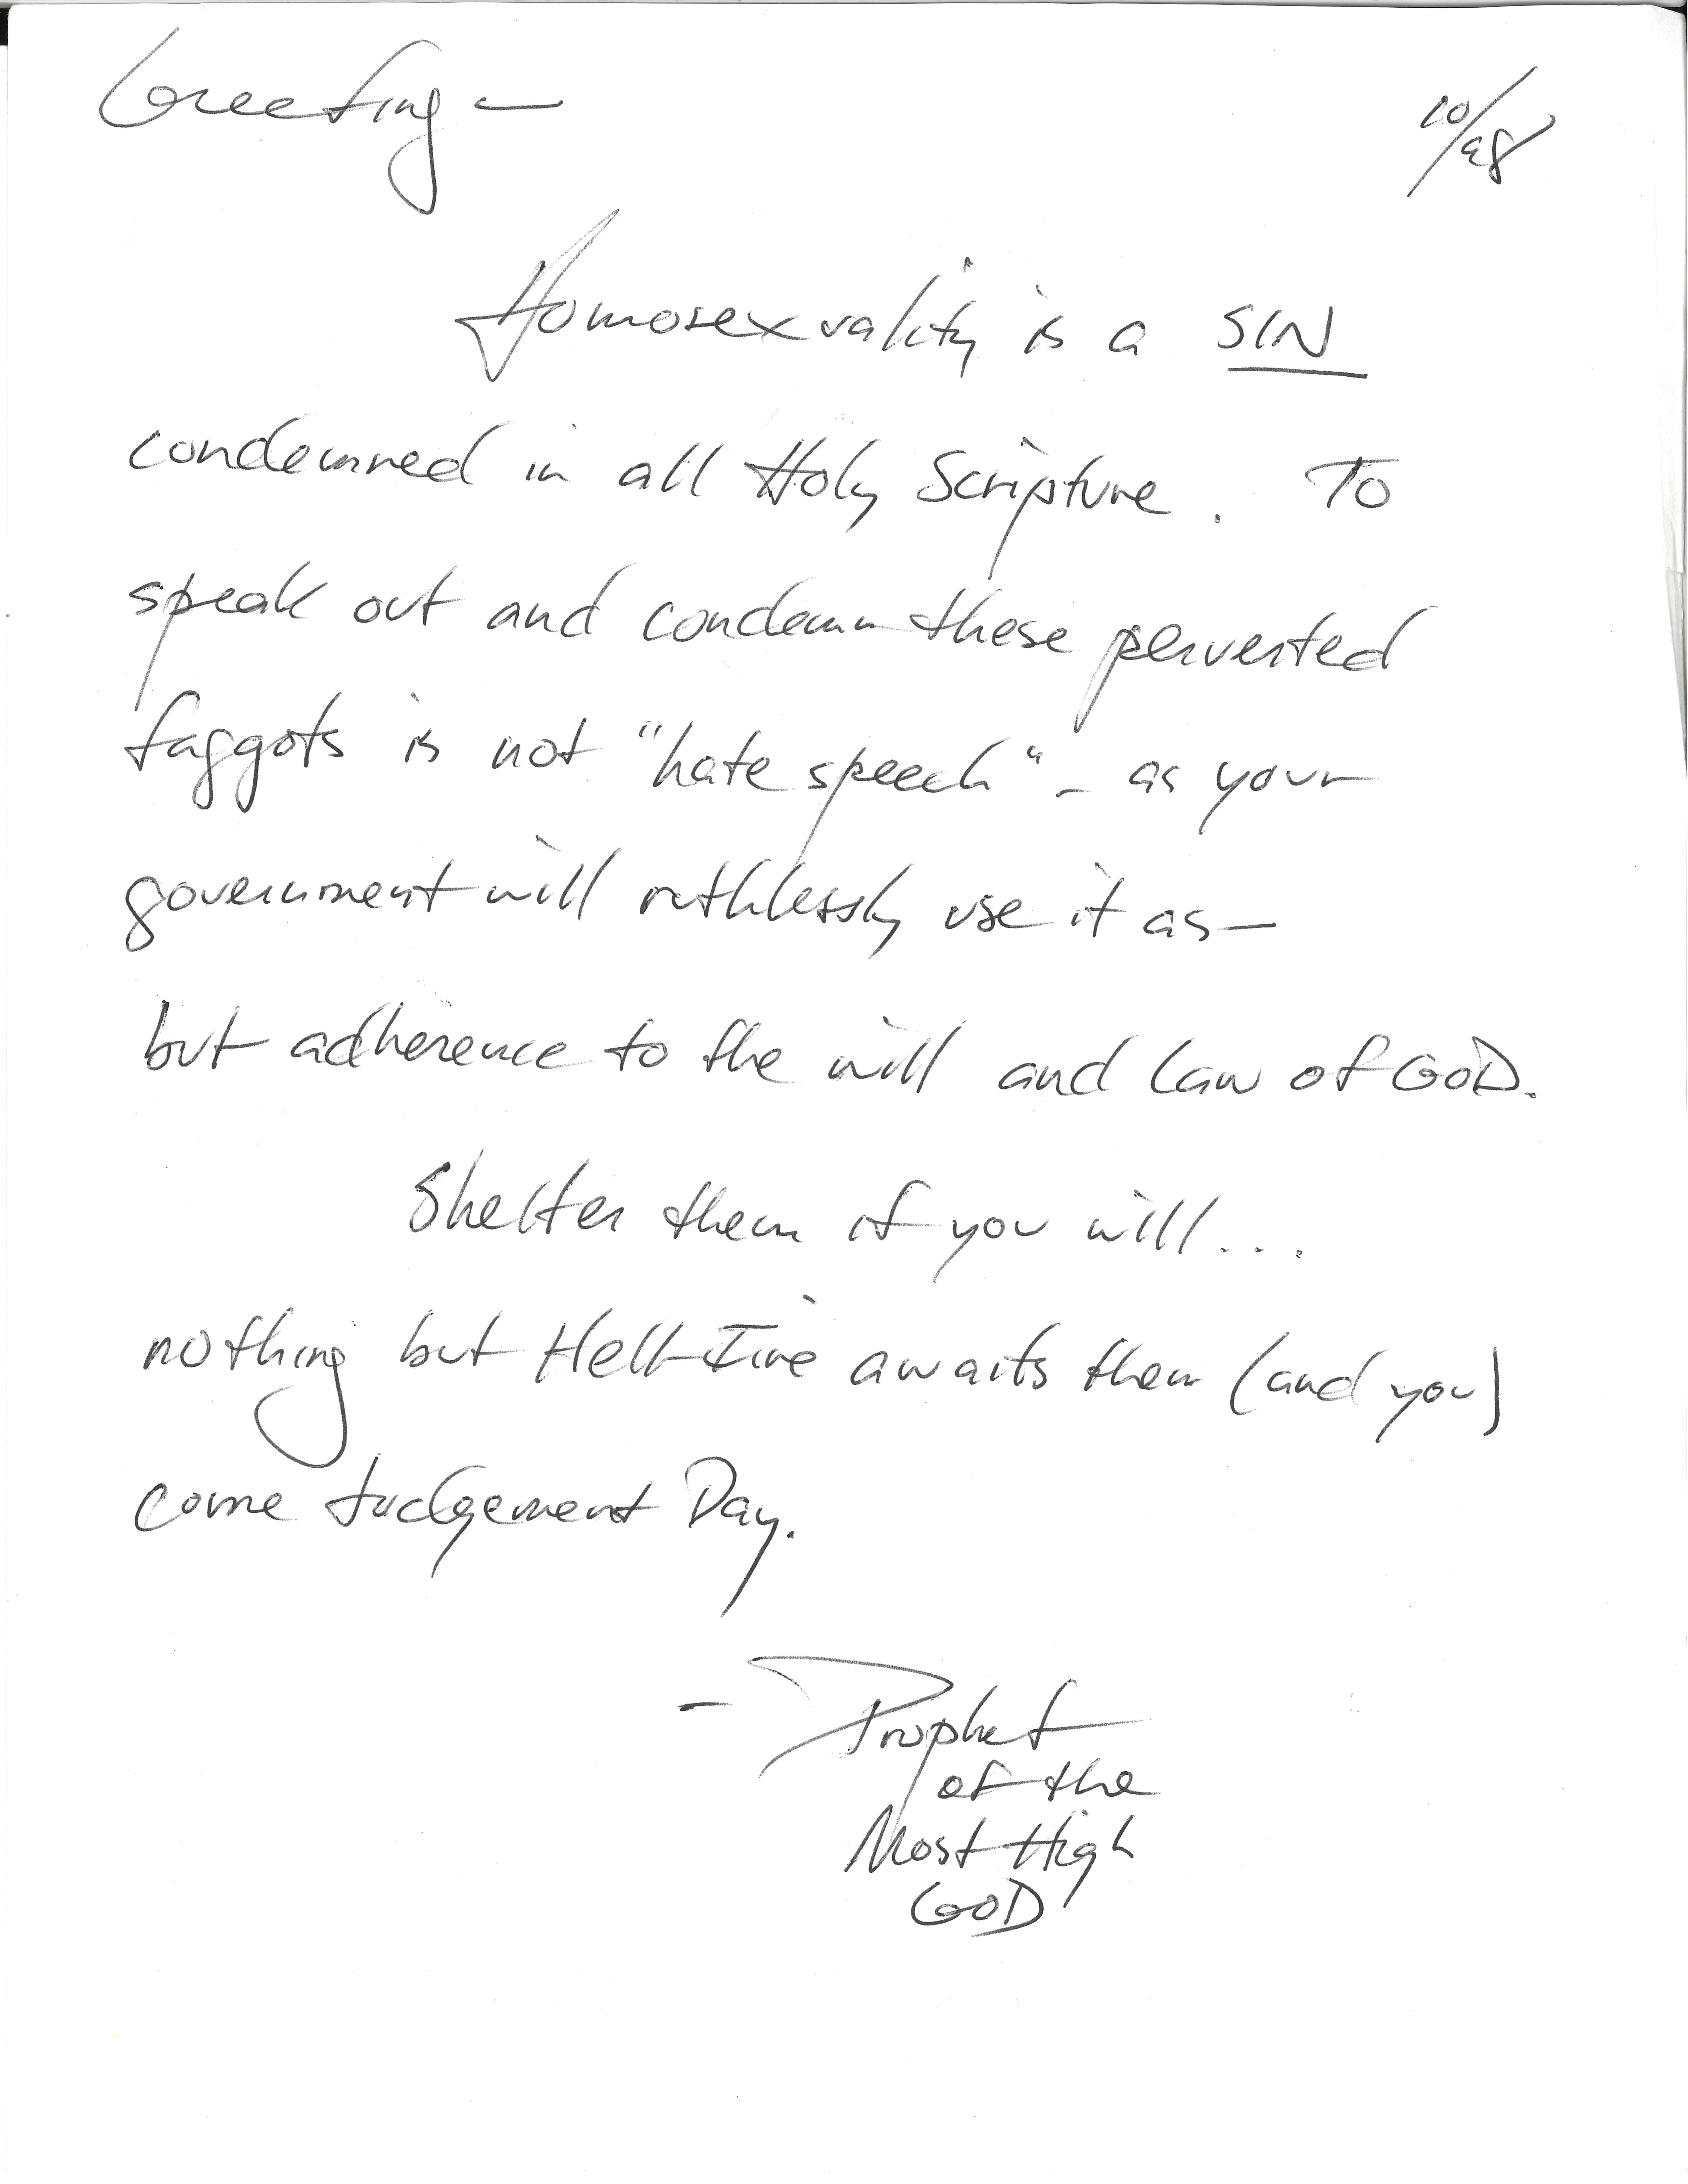 Greeting —
10/98
Homosexuality is a SIN
condemned in all Holy Scripture. To
speak out and condemn these perverted
faggots is not "hate speech" - as your
government will ruthlessly use it as—
but adherence to the will and law of GOD.
Shelter them if you will...
nothing but Hell-Fire awaits them (and you)
come Judgement Day.
- Prophet
of the
Most High
GOD